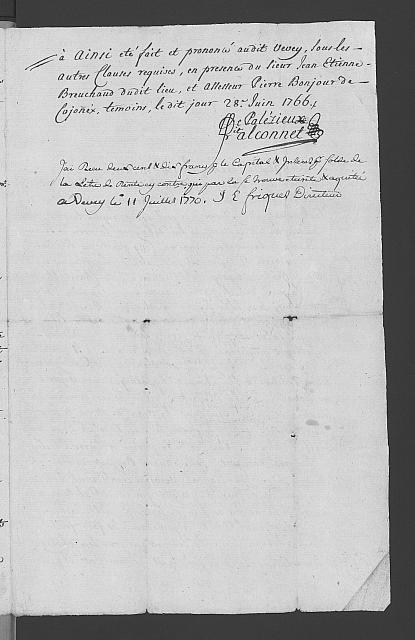 à Ainsi eté fait et prononcé audit Vevey, sous les-
autres Clauses requises, en presence du sieur Jean Etienne-
Breuchaud dudit lieu, et Assesseur Pierre Bonjour de-
Cojonix, temoins, le dit jour 28e. Juin 1766.
De Palézieux
dit Falconnet
Jai Recu deux Cent & dix francs p le Capital & Interest p solde de
la Letre de Rente cy contre qui par la se trouve eteinte & aquitée
a Vevey le 11 Juillet 1770. J E friquet Directeur